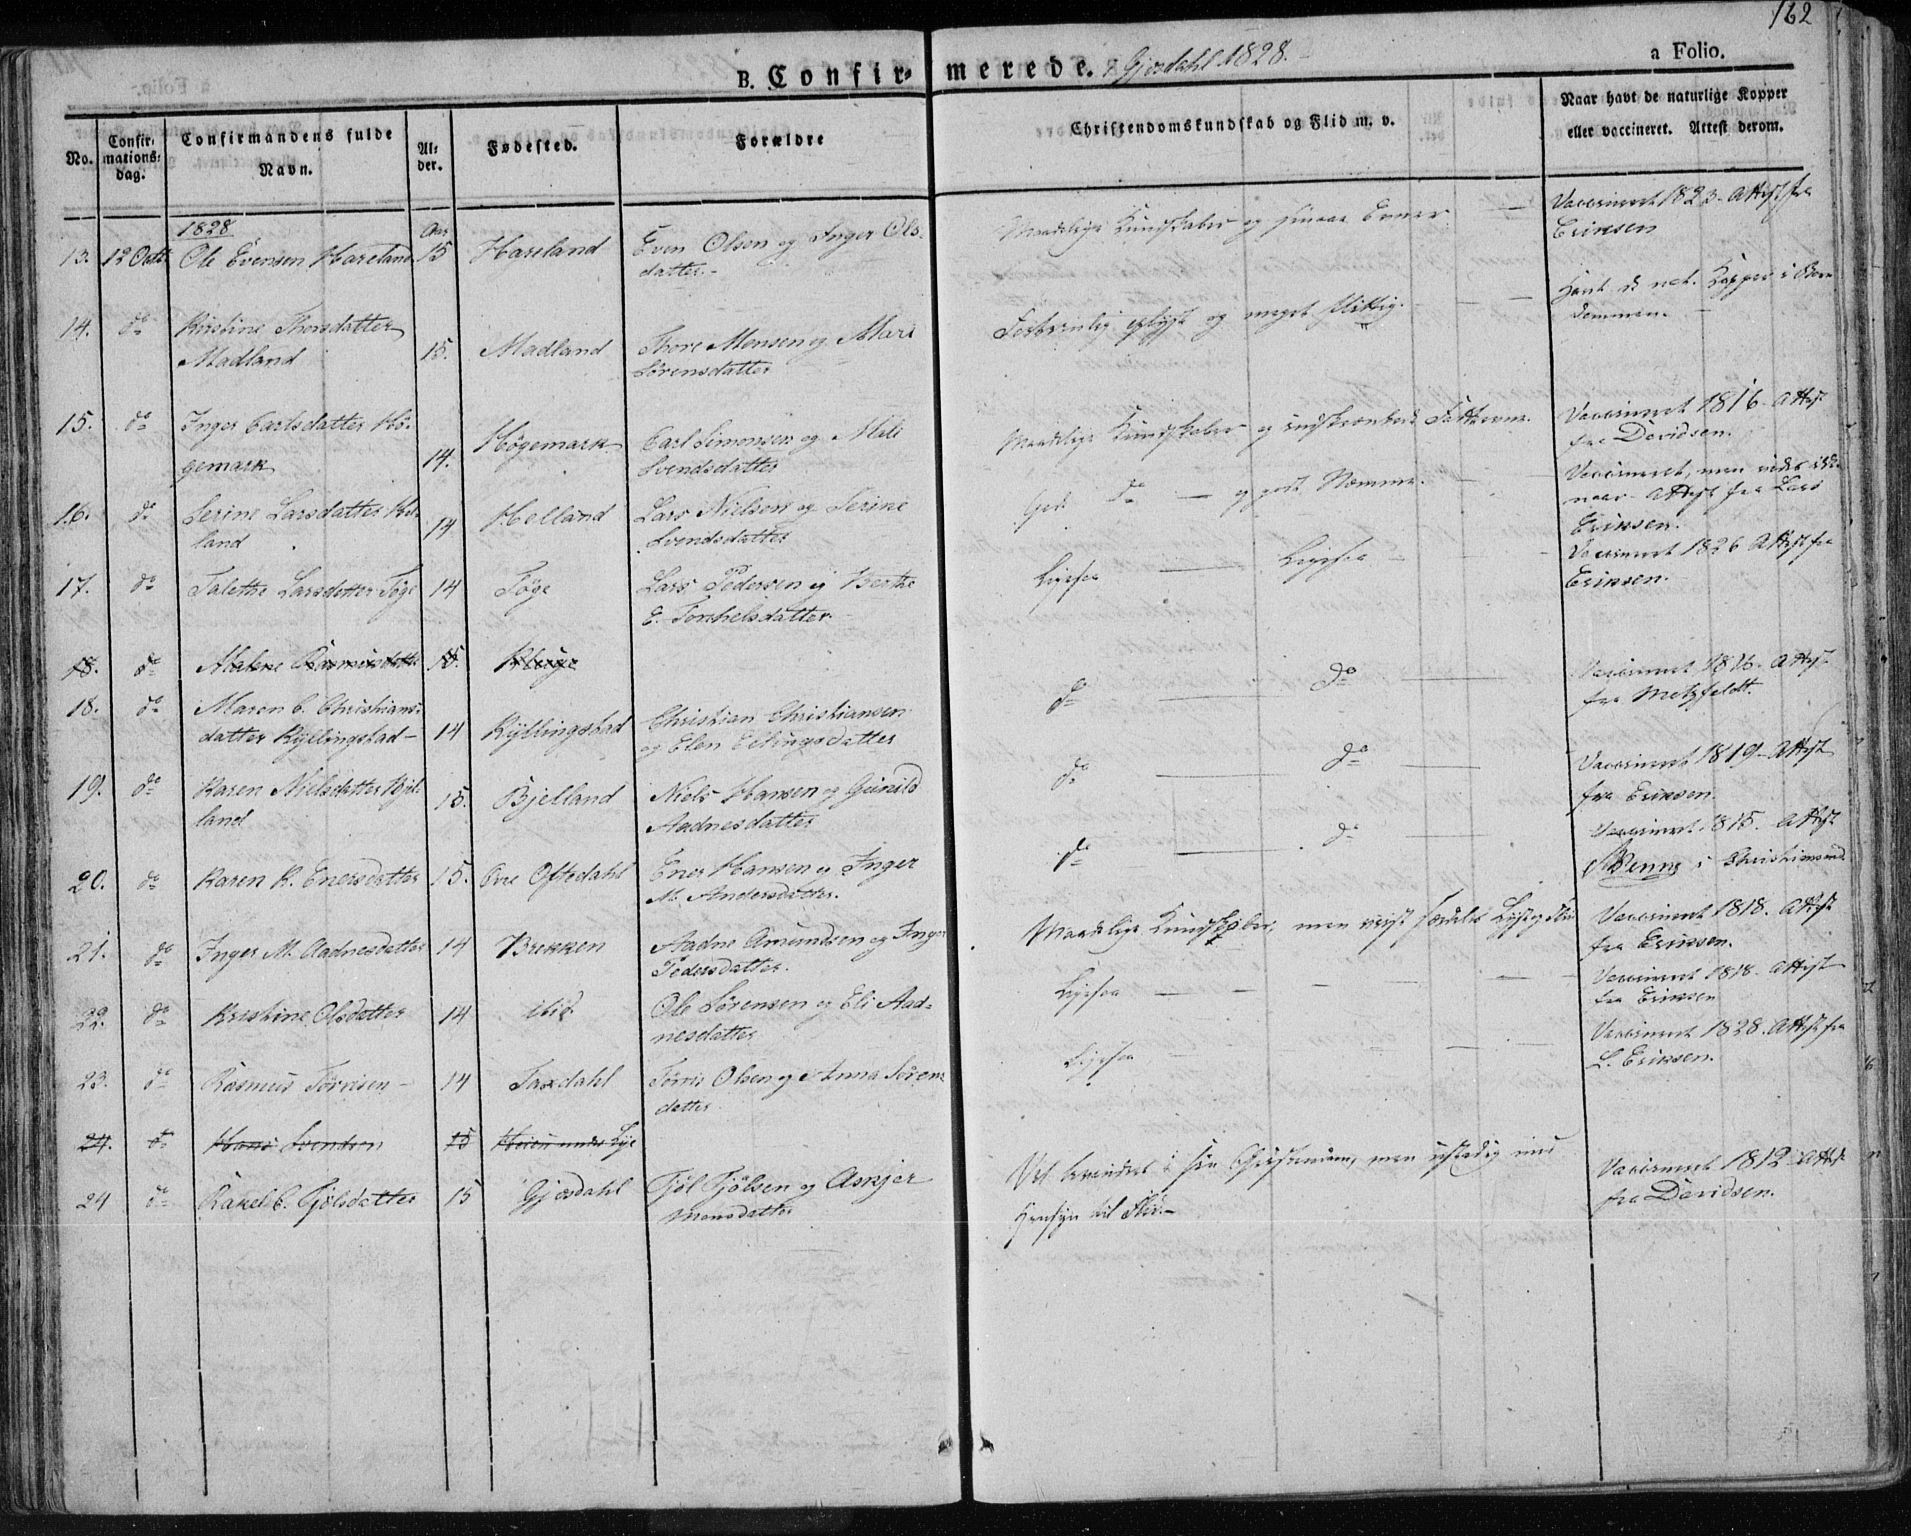 162
B. Confirmerede. i Gjesdahl 1828.
a Folio.
No.
Confirmations-dag.
Confirmandens fulde Navn.
Alder.
Fødested.
Forældre
Christendomskundskab og Flid m. v.
Naar havt de naturlige Kopper eller vaccineret. Attest derom.
1828
Aar
13. 12 Octb. Ole Evensen Hareland 15 Hareland Even Olsen og Inger Ols-
datter.
Maadelige Kundskaber og smaae Evner
Vaccineret 1823. Attest fra
Eriksen
14. do Kirstine Thorsdatter
Madland 15. Madland Thore Monsen og Mari
Sørensdatter
Fortrinlig oplyst og meget flittig.
Havt d. nat. Kopper i Barn
dommen.
15. do Inger Carlsdatter Hø-
gemark 14. Høgemark Carl Simonsen og Mali
Svendsdatter
Maadelige Kundskaber og indskrænkede Fatteevne.
Vaccineret 1816. Attest
fra Davidsen.
16. do Serine Larsdatter Hel-
land 14 Helland Lars Nielsen og Serine
Svendsdatter
God do og godt Nemme.
Vaccineret, men vides ikke
naar. Attest fra Lars
Eriksen.
17. do Talette Larsdatter Føge 14 Føge Lars Pedersen og Berthe
E. Torkelsdatter.
Ligesaa Ligesaa
Vaccineret 1826 Attest fra
Eriksen.
18. do Malene Rasmusdatter 15.
18. do Maren C. Christians-
datter Kyllingstad 14 Kyllingstad Christian Christiansen
og Elen Ellingsdatter
do do
Vaccineret 1816. Attest
fra Metzfeldt.
19. do Karen Nielsdatter Bjel-
land 15. Bjelland Niels Hansen og Gunild
Aadnesdatter
do do
Vaccineret 1819. Attest
fra Eriksen.
20. do Karen K. Enersdatter 15. Øvre Oftedahl Ener Hansen og Inger
M. Andersdatter.
do do
Vaccineret 1815. Attest
i Christiansund.
21. do Inger M. Aadnesdatter 14 Brekken Aadne Amundsen og Inger
Pedersdatter.
Maadelige Kundskaber, men viist særdeles Lyst og Flid
Vaccineret 1818. Attest
fra Eriksen.
22. do Kristine Olsdatter 14 Ole Sørensen og Eli Aad-
nesdatter
Ligesaa
Vaccineret 1818. Attest
fra Eriksen
23. do Rasmus Tørrisen 14 Taxdahl Tørris Olsen og Anna Sørens
datter
Ligesaa
Vaccineret 1828. Attest fra
L. Eriksen.
24. do Hans Svendsen 15 under Lye
24 do Rakel C. Fjølsdatter 15 Gjesdahl Fjøl Fjølsen og Askjer
Monsdatter
Vel bevandret i sin Christendom, men ustadig med
Hensyn til Flid.
Vaccineret 1812. Attest
fra Davidsen.